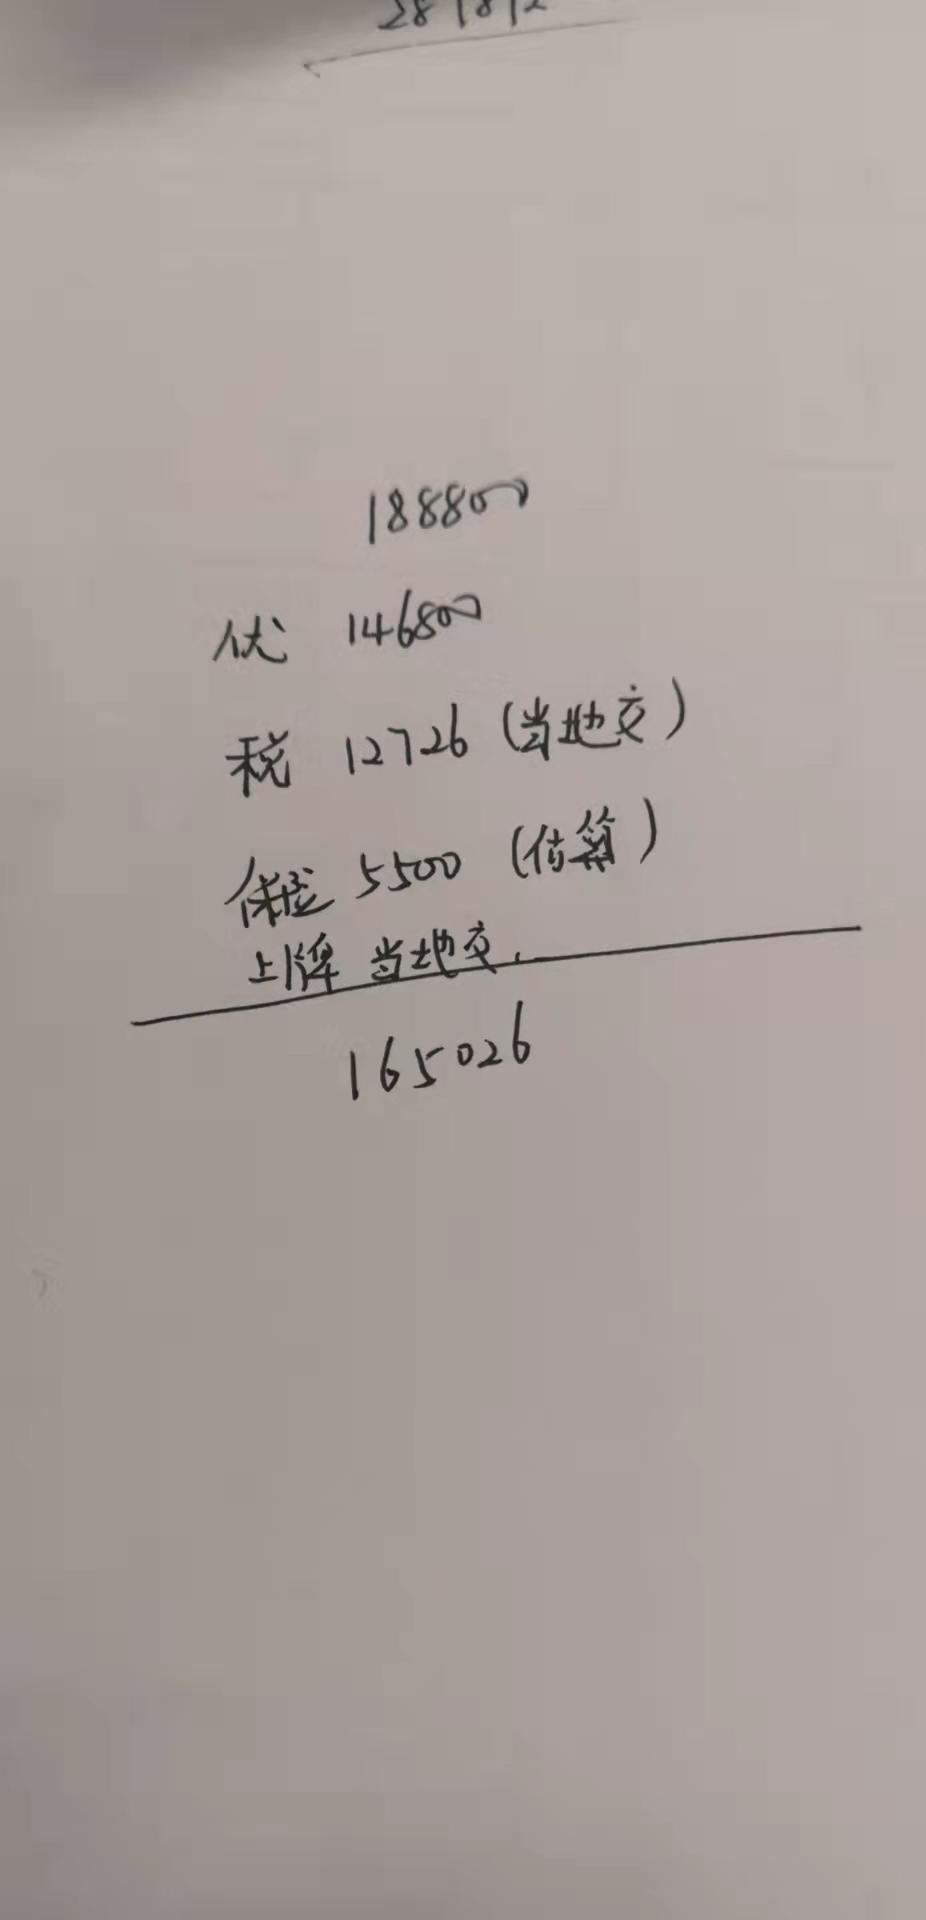 188800
优 146800
税 12726 (当地交)
保险 5500 (估算)
上牌 当地交.
165026